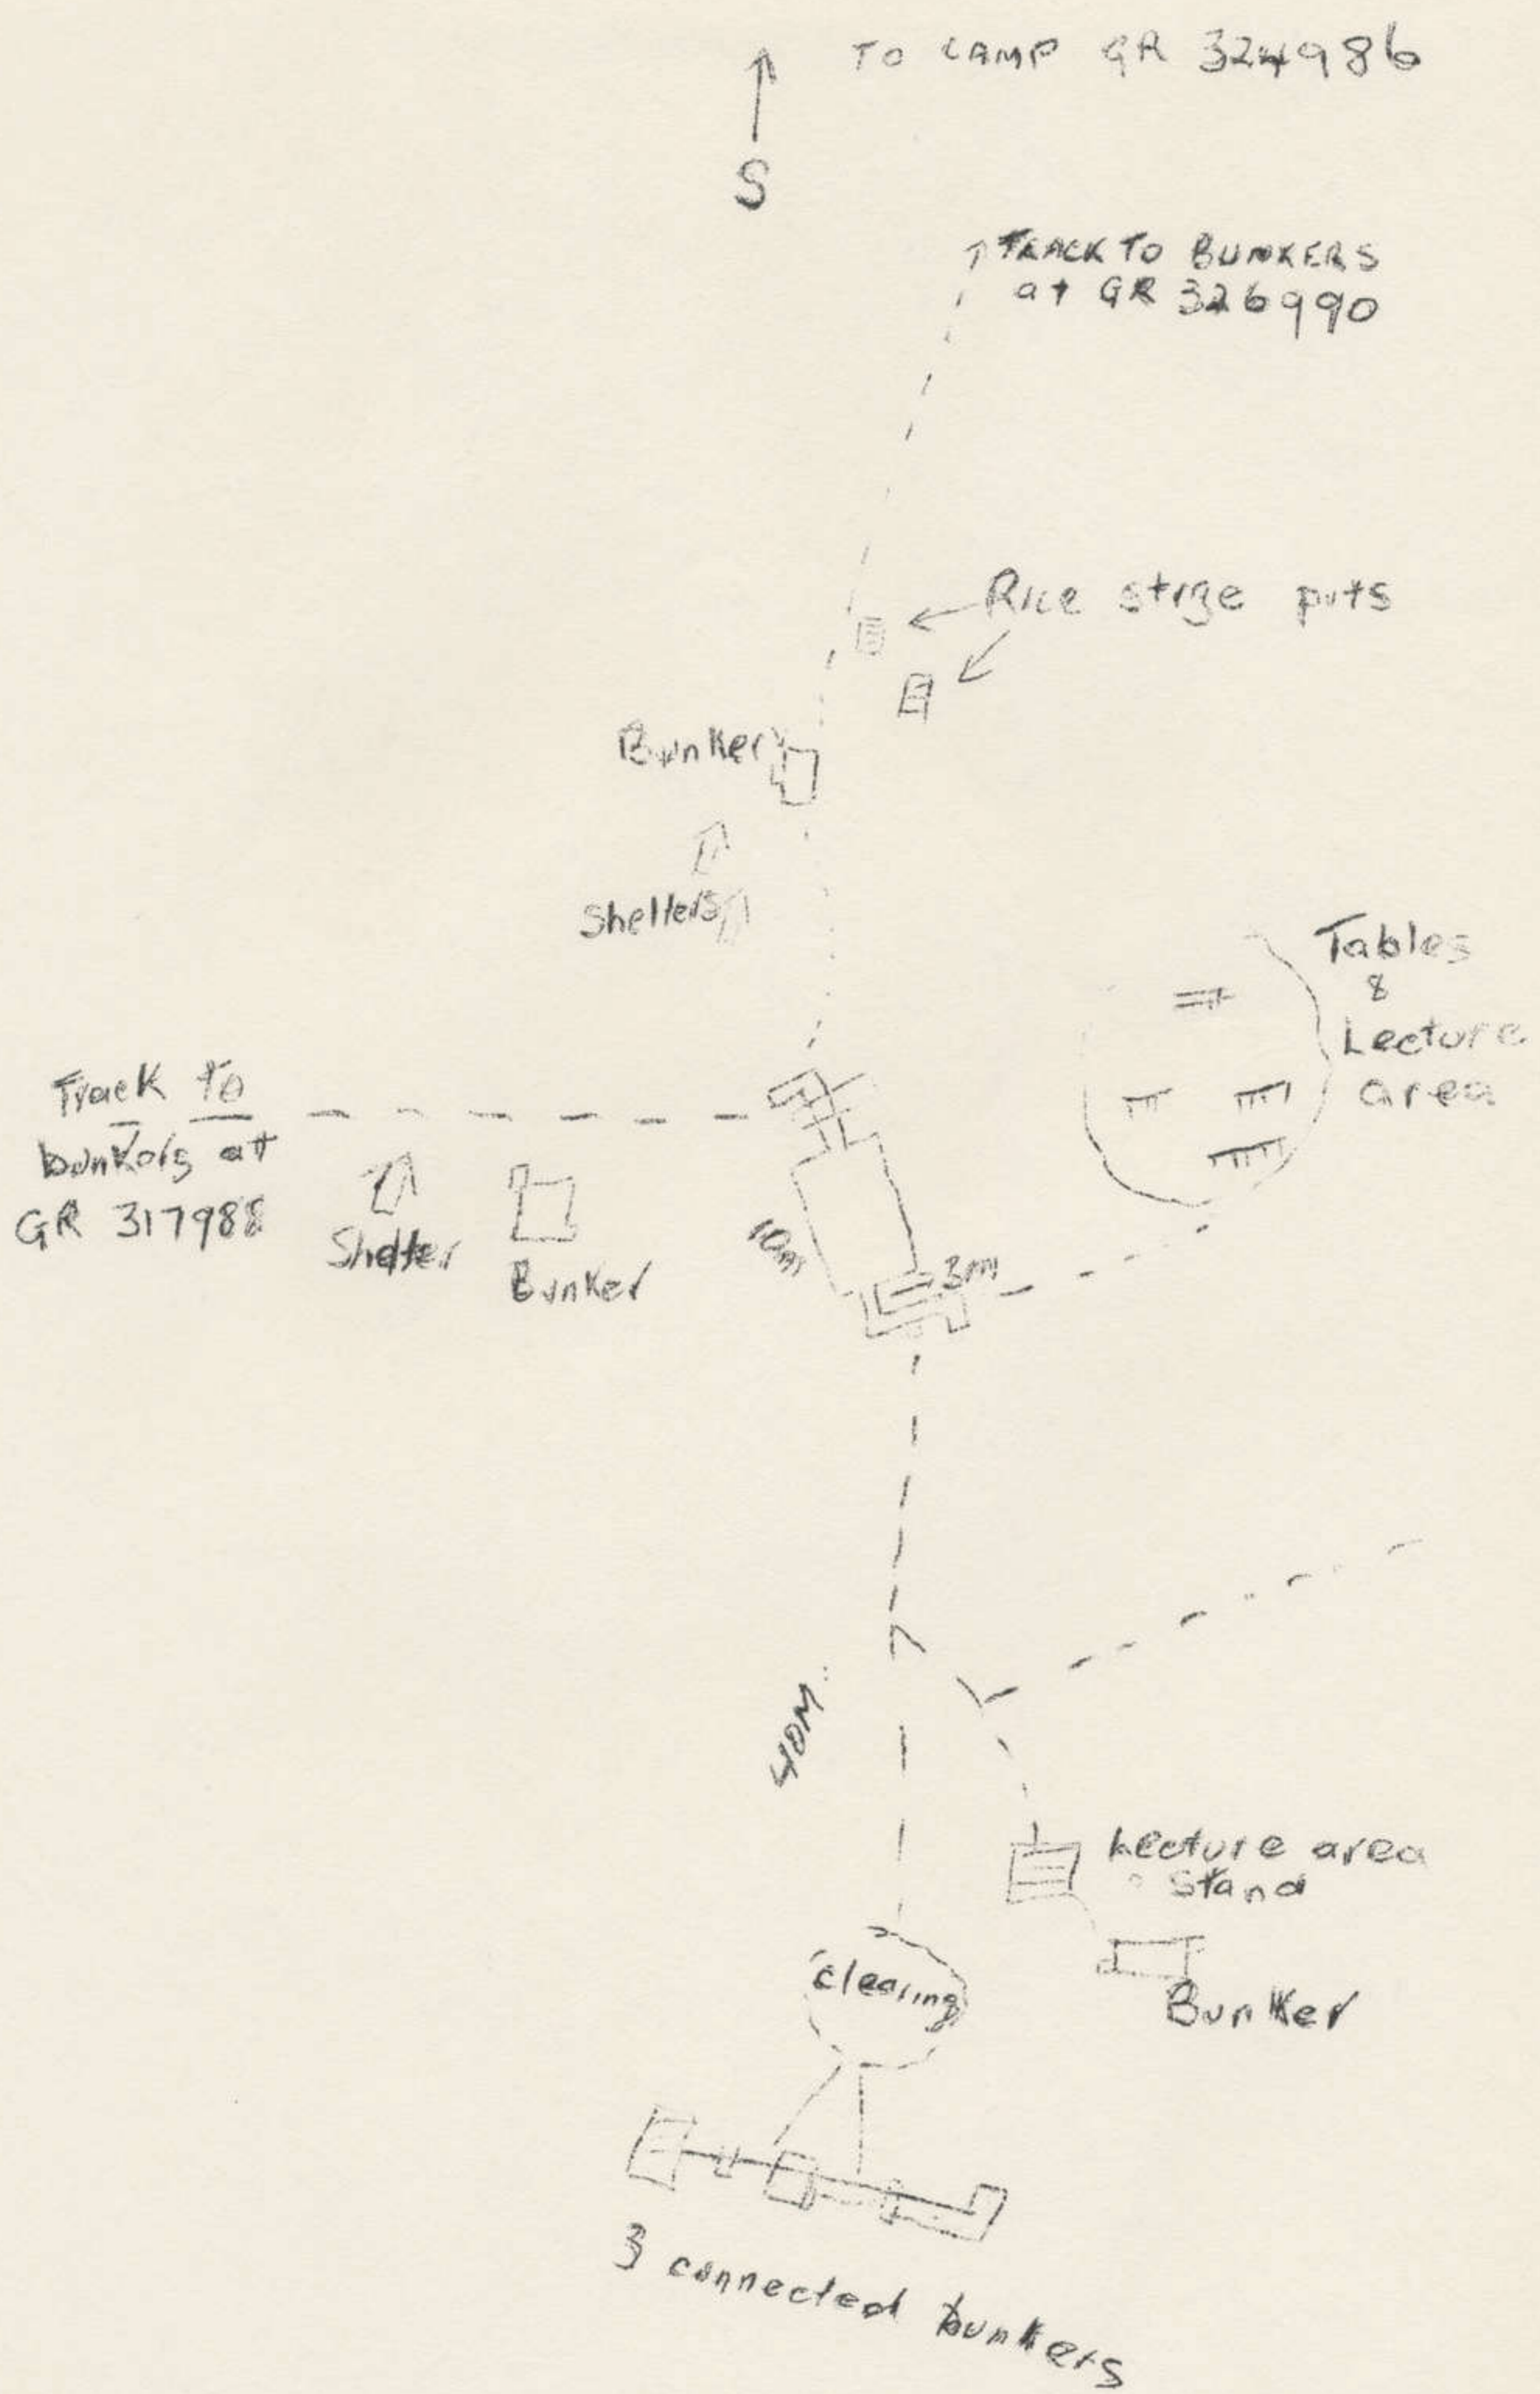 TO CAMP GR 324986
S
TRACK TO BUNKERS
at GR 326990
Rice strge puts
Bunker
Shelters
Tables
&
Lecture
area
Track to
bunkers at
GR 317988
Shelter
Bunker
10m
3m
40M
Lecture area
Stand
clearing
Bunker
3 connected bunkers